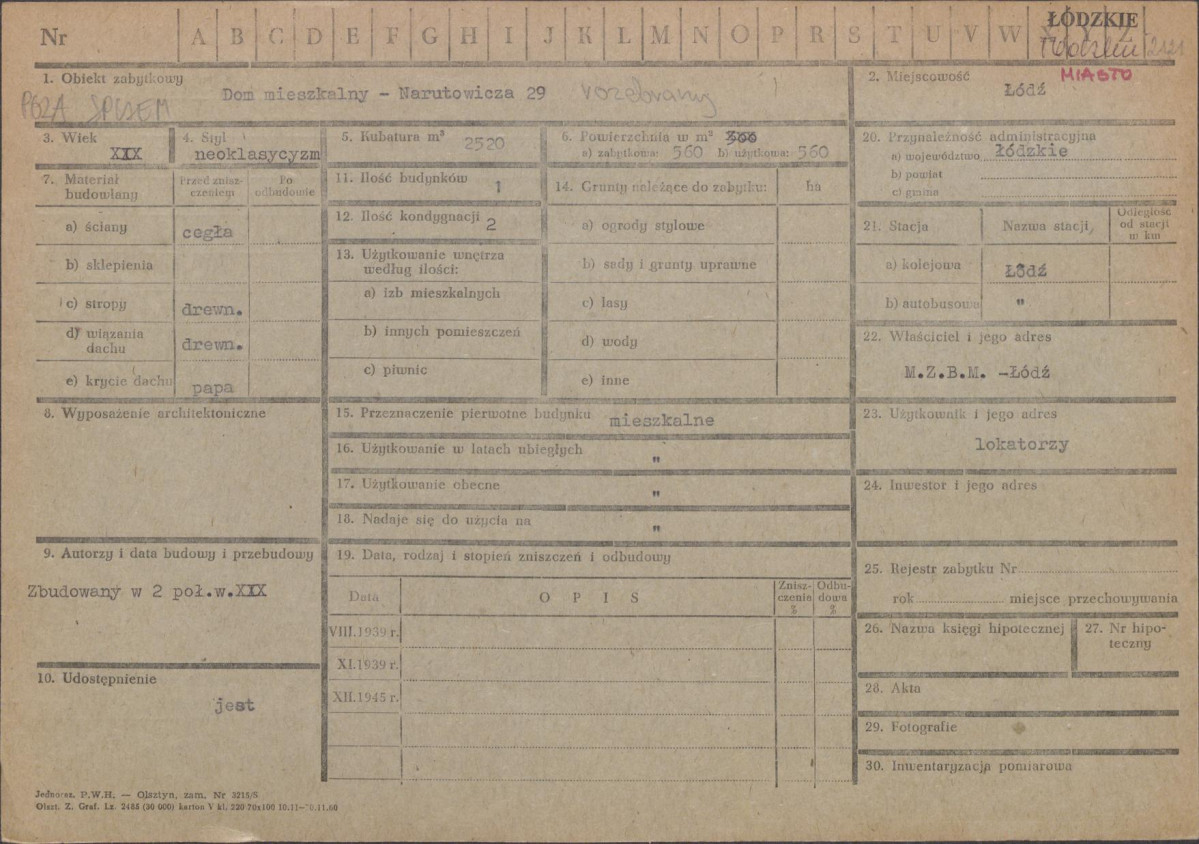 Nr A B C D E F G H I J K L M N O P R S T U V W
ŁÓDZKIE
MIASTO
1. Obiekt zabytkowy
POZA SPISEM
Dom mieszkalny - Narutowicza 29 rozebrany
2. Miejscowość
Łódź
3. Wiek
XIX
4. Styl
neoklasycyzm
5. Kubatura m³ 2520
6. Powierzchnia w m²
a) zabytkowa: 560 b) użytkowa: 560
7. Materiał budowlany
Przed znisz-
czeniem
Po
odbudowie
a) ściany cegła
b) sklepienia
c) stropy drewn.
d) wiązania
dachu drewn.
e) krycie dachu papa
8. Wyposażenie architektoniczne
9. Autorzy i data budowy i przebudowy
Zbudowany w 2 poł.w.XIX
10. Udostępnienie
jest
11. Ilość budynków 1
12. Ilość kondygnacji 2
13. Użytkowanie wnętrza
według ilości:
a) izb mieszkalnych
b) innych pomieszczeń
c) piwnic
14. Grunty należące do zabytku: ha
a) ogrody stylowe
b) sady i grunty uprawne
c) lasy
d) wody
e) inne
15. Przeznaczenie pierwotne budynku mieszkalne
16. Użytkowanie w latach ubiegłych "
17. Użytkowanie obecne "
18. Nadaje się do użycia na "
19. Data, rodzaj i stopień zniszczeń i odbudowy
Data O P I S
Znisz-
czenia
%
Odbu-
dowa
%
VIII.1939 r.
XI.1939 r.
XII.1945 r.
20. Przynależność administracyjna
a) województwo łódzkie
b) powiat
c) gmina
21. Stacja Nazwa stacji
Odległość
od stacji
w km
a) kolejowa Łódź
b) autobusowa "
22. Właściciel i jego adres
M.Z.B.M. -Łódź
23. Użytkownik i jego adres
lokatorzy
24. Inwestor i jego adres
25. Rejestr zabytku Nr
rok miejsce przechowywania
26. Nazwa księgi hipotecznej
27. Nr hipo-
teczny
28. Akta
29. Fotografie
30. Inwentaryzacja pomiarowa
Jednoraz. P.W.H. — Olsztyn, zam. Nr 3215/S
Olszt. Z. Graf. Lz. 2488 (30 000) karton V kl. 220 70x100